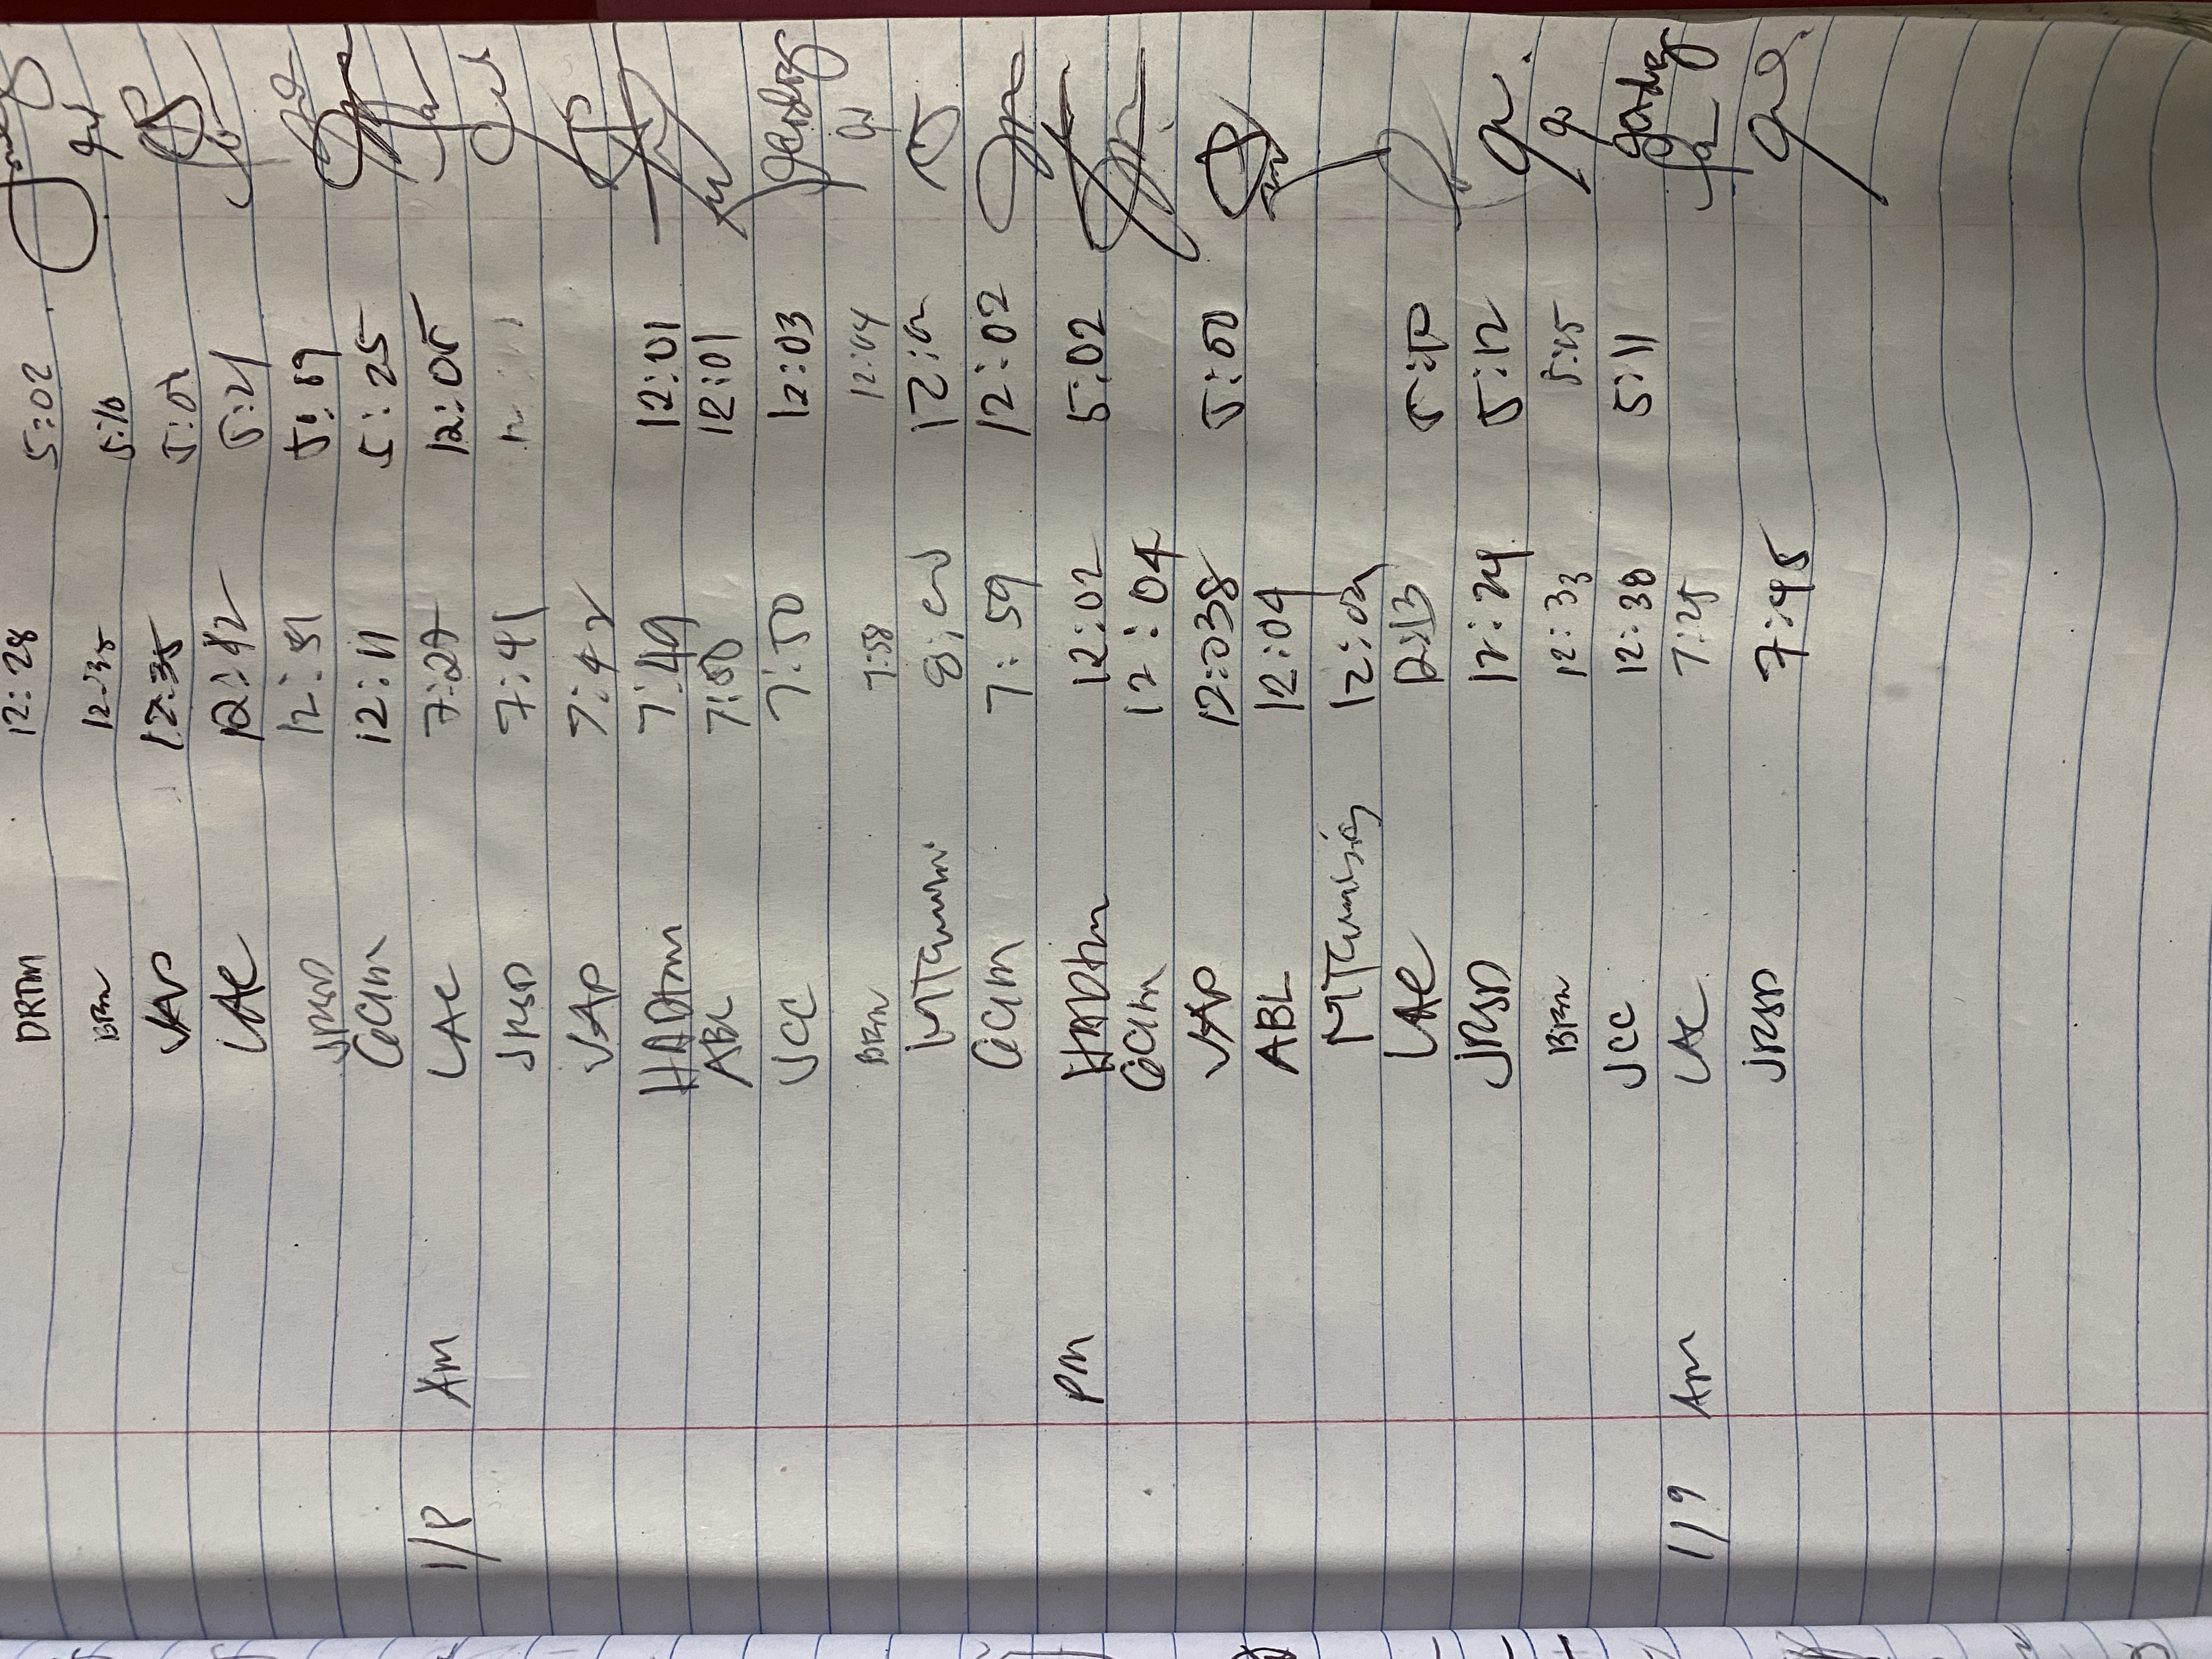 DRTM 12:28 5:02
BRM 12:35 5:10
VAP 12:35 5:01
LAC 12:42 5:21
JRSD 12:51 5:09
GCUM 12:11 5:25
1/8 Am LAC 7:27 12:05
JRSD 7:41
VAP 7:42
HADTM 7:49 12:01
ABL 7:50 12:01
JCC 7:50 12:03
BRM 7:58 12:04
MTCumisig 12:02
GCUM 7:59 12:02
PM HADTM 12:02 5:02
GCUM 12:04
VAP 12:038 5:00
ABL 12:04
MTCumisig 12:02
LAC 12:13
JRSD 12:24 5:12
BRM 12:33 5:25
JCC 12:38 5:11
1/9 Am LAC 7:25
JRSD 7:45